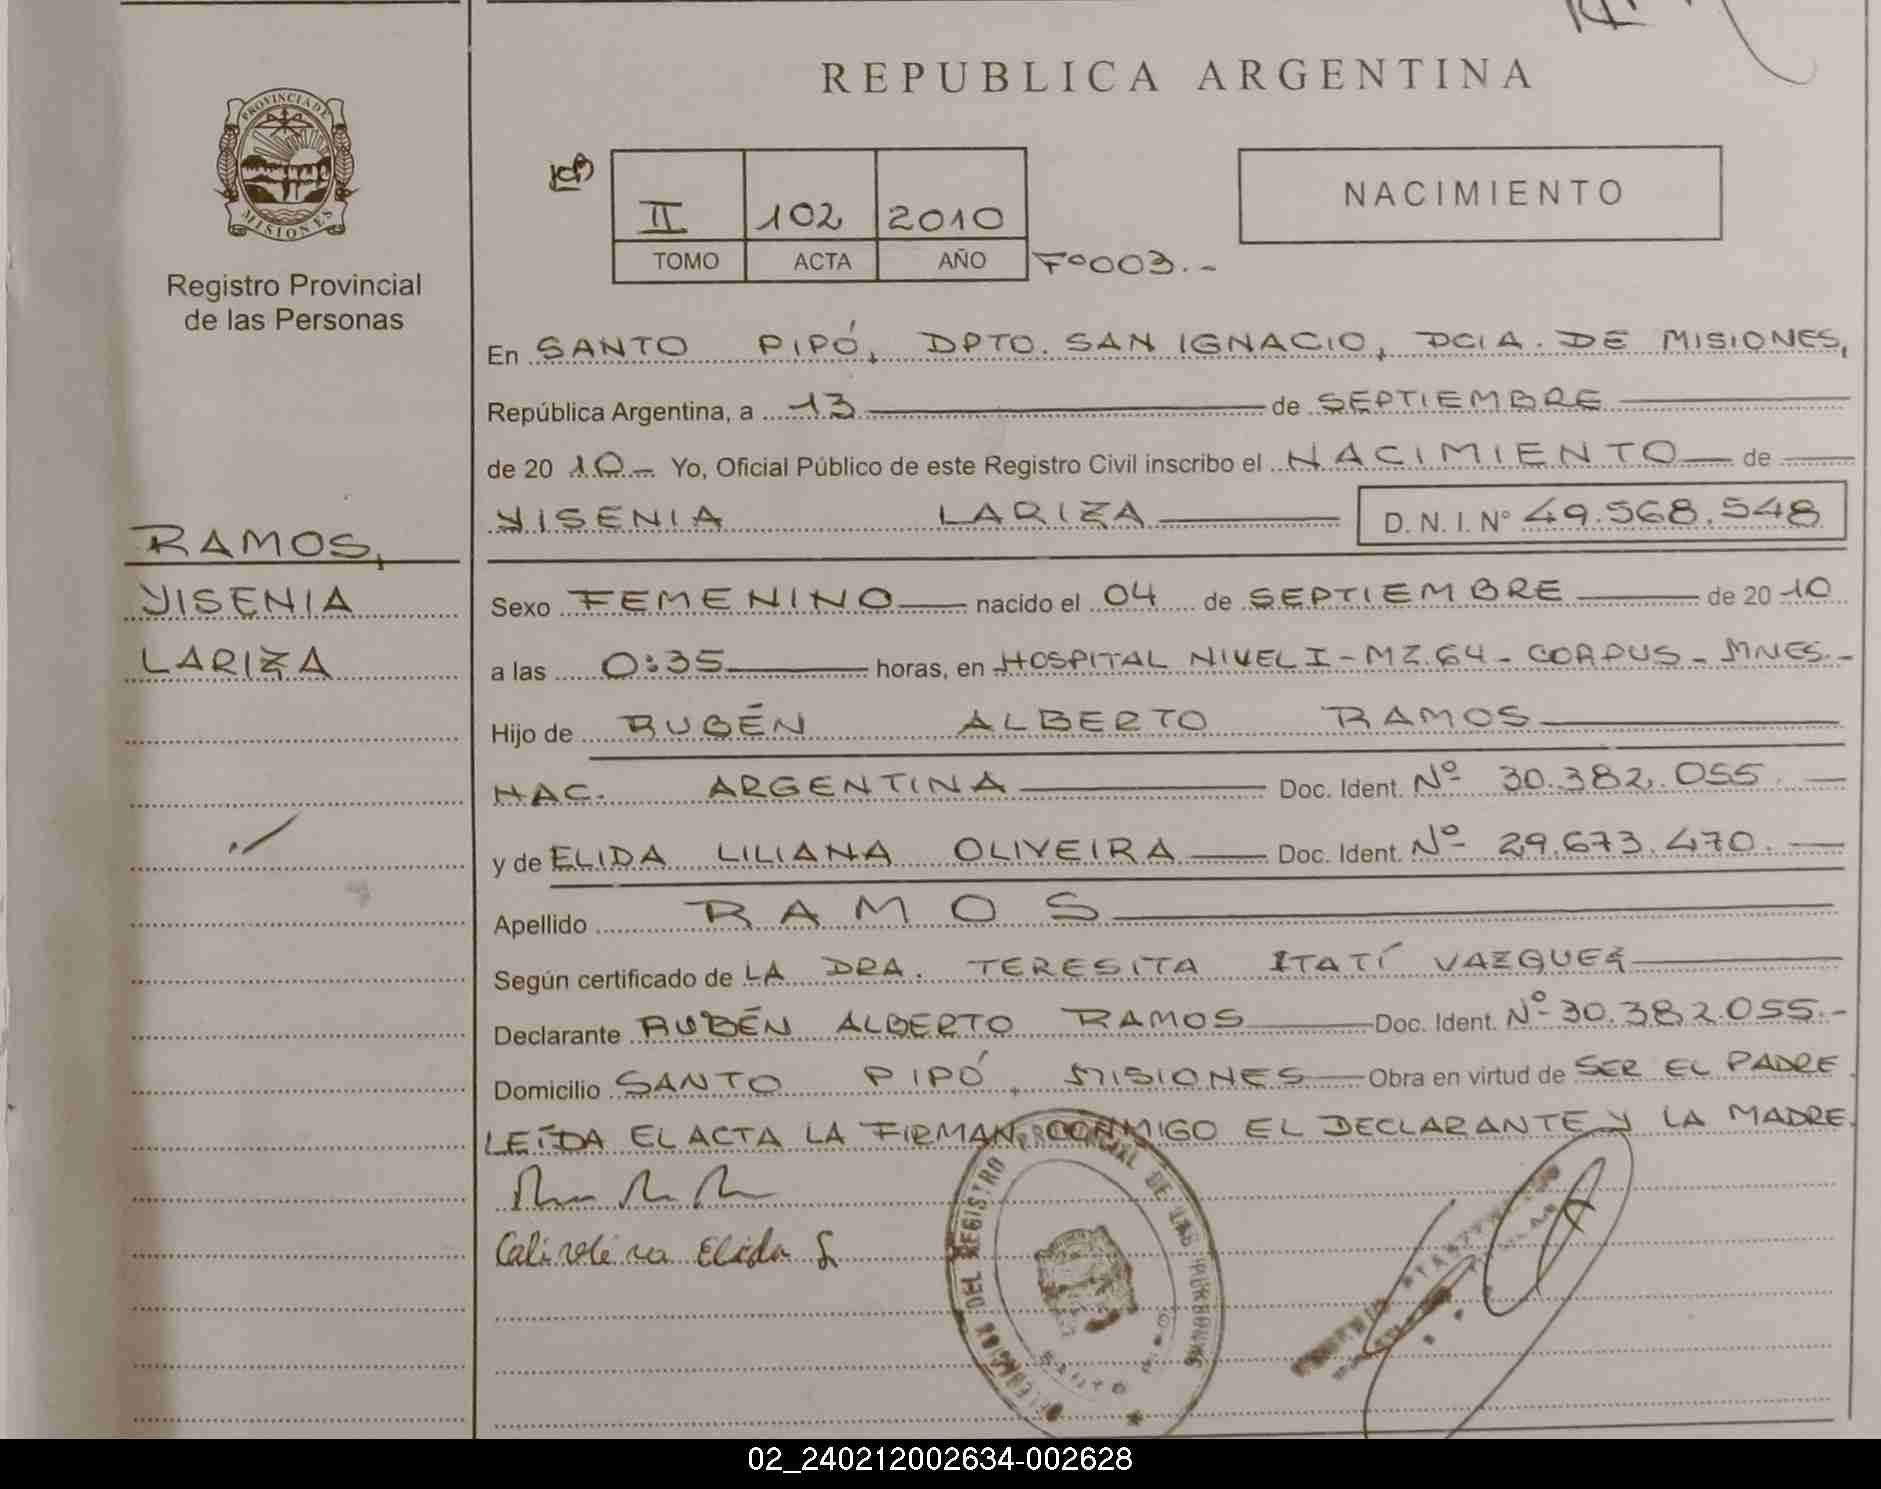 REPUBLICA ARGENTINA
PROVINCIA DE
MISIONES
Registro Provincial
de las Personas
II 102 2010
TOMO ACTA AÑO Fº003.-
NACIMIENTO
En SANTO PIPÓ, DPTO. SAN IGNACIO, PCIA. DE MISIONES,
República Argentina, a 13 de SEPTIEMBRE
de 20 10.- Yo, Oficial Público de este Registro Civil inscribo el NACIMIENTO de
YISENIA LARIZA D. N. I. Nº 49.568.548
RAMOS,
YISENIA
LARIZA
Sexo FEMENINO nacido el 04 de SEPTIEMBRE de 20 10
a las 0:35 horas, en HOSPITAL NIVEL I - MZ.64 - CORPUS - MNES.-
Hijo de RUBÉN ALBERTO RAMOS
NAC. ARGENTINA Doc. Ident. Nº 30.382.055.
y de ELIDA LILIANA OLIVEIRA Doc. Ident. Nº 29.673.470.
Apellido RAMOS
Según certificado de LA DRA. TERESITA ITATÍ VAZQUEZ
Declarante RUBÉN ALBERTO RAMOS Doc. Ident. Nº 30.382.055.-
Domicilio SANTO PIPÓ, MISIONES Obra en virtud de SER EL PADRE.
LEÍDA EL ACTA LA FIRMAN CONMIGO EL DECLARANTE Y LA MADRE.
Elida
DEL REGISTRO PROVINCIAL DE LAS PERSONAS
SANTO
02_240212002634-002628